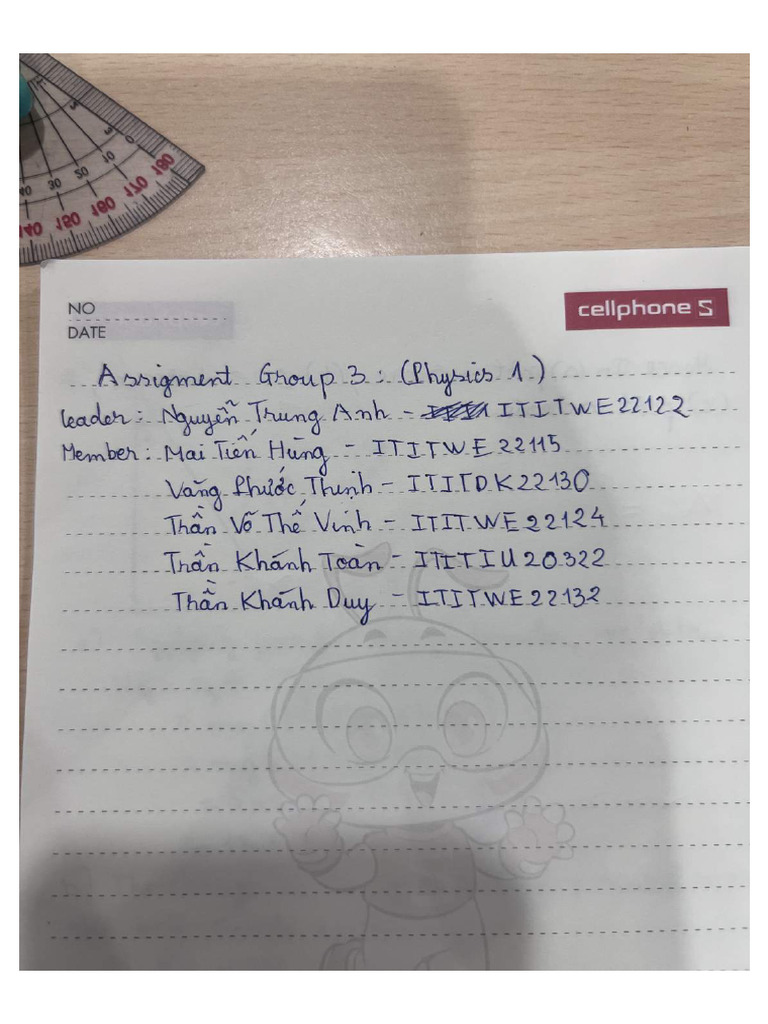 180
170
160
150
140
0
10
20
30
40
NO
DATE
cellphone S
Assigment Group 3 : (Physics 1)
leader : Nguyễn Trung Anh - ITITWE22122
Member : Mai Tiến Hùng - ITITWE22115
Văng Phước Thịnh - ITITDK22130
Trần Võ Thế Vinh - ITITWE22124
Trần Khánh Toàn - ITITIU20322
Trần Khánh Duy - ITITWE22132